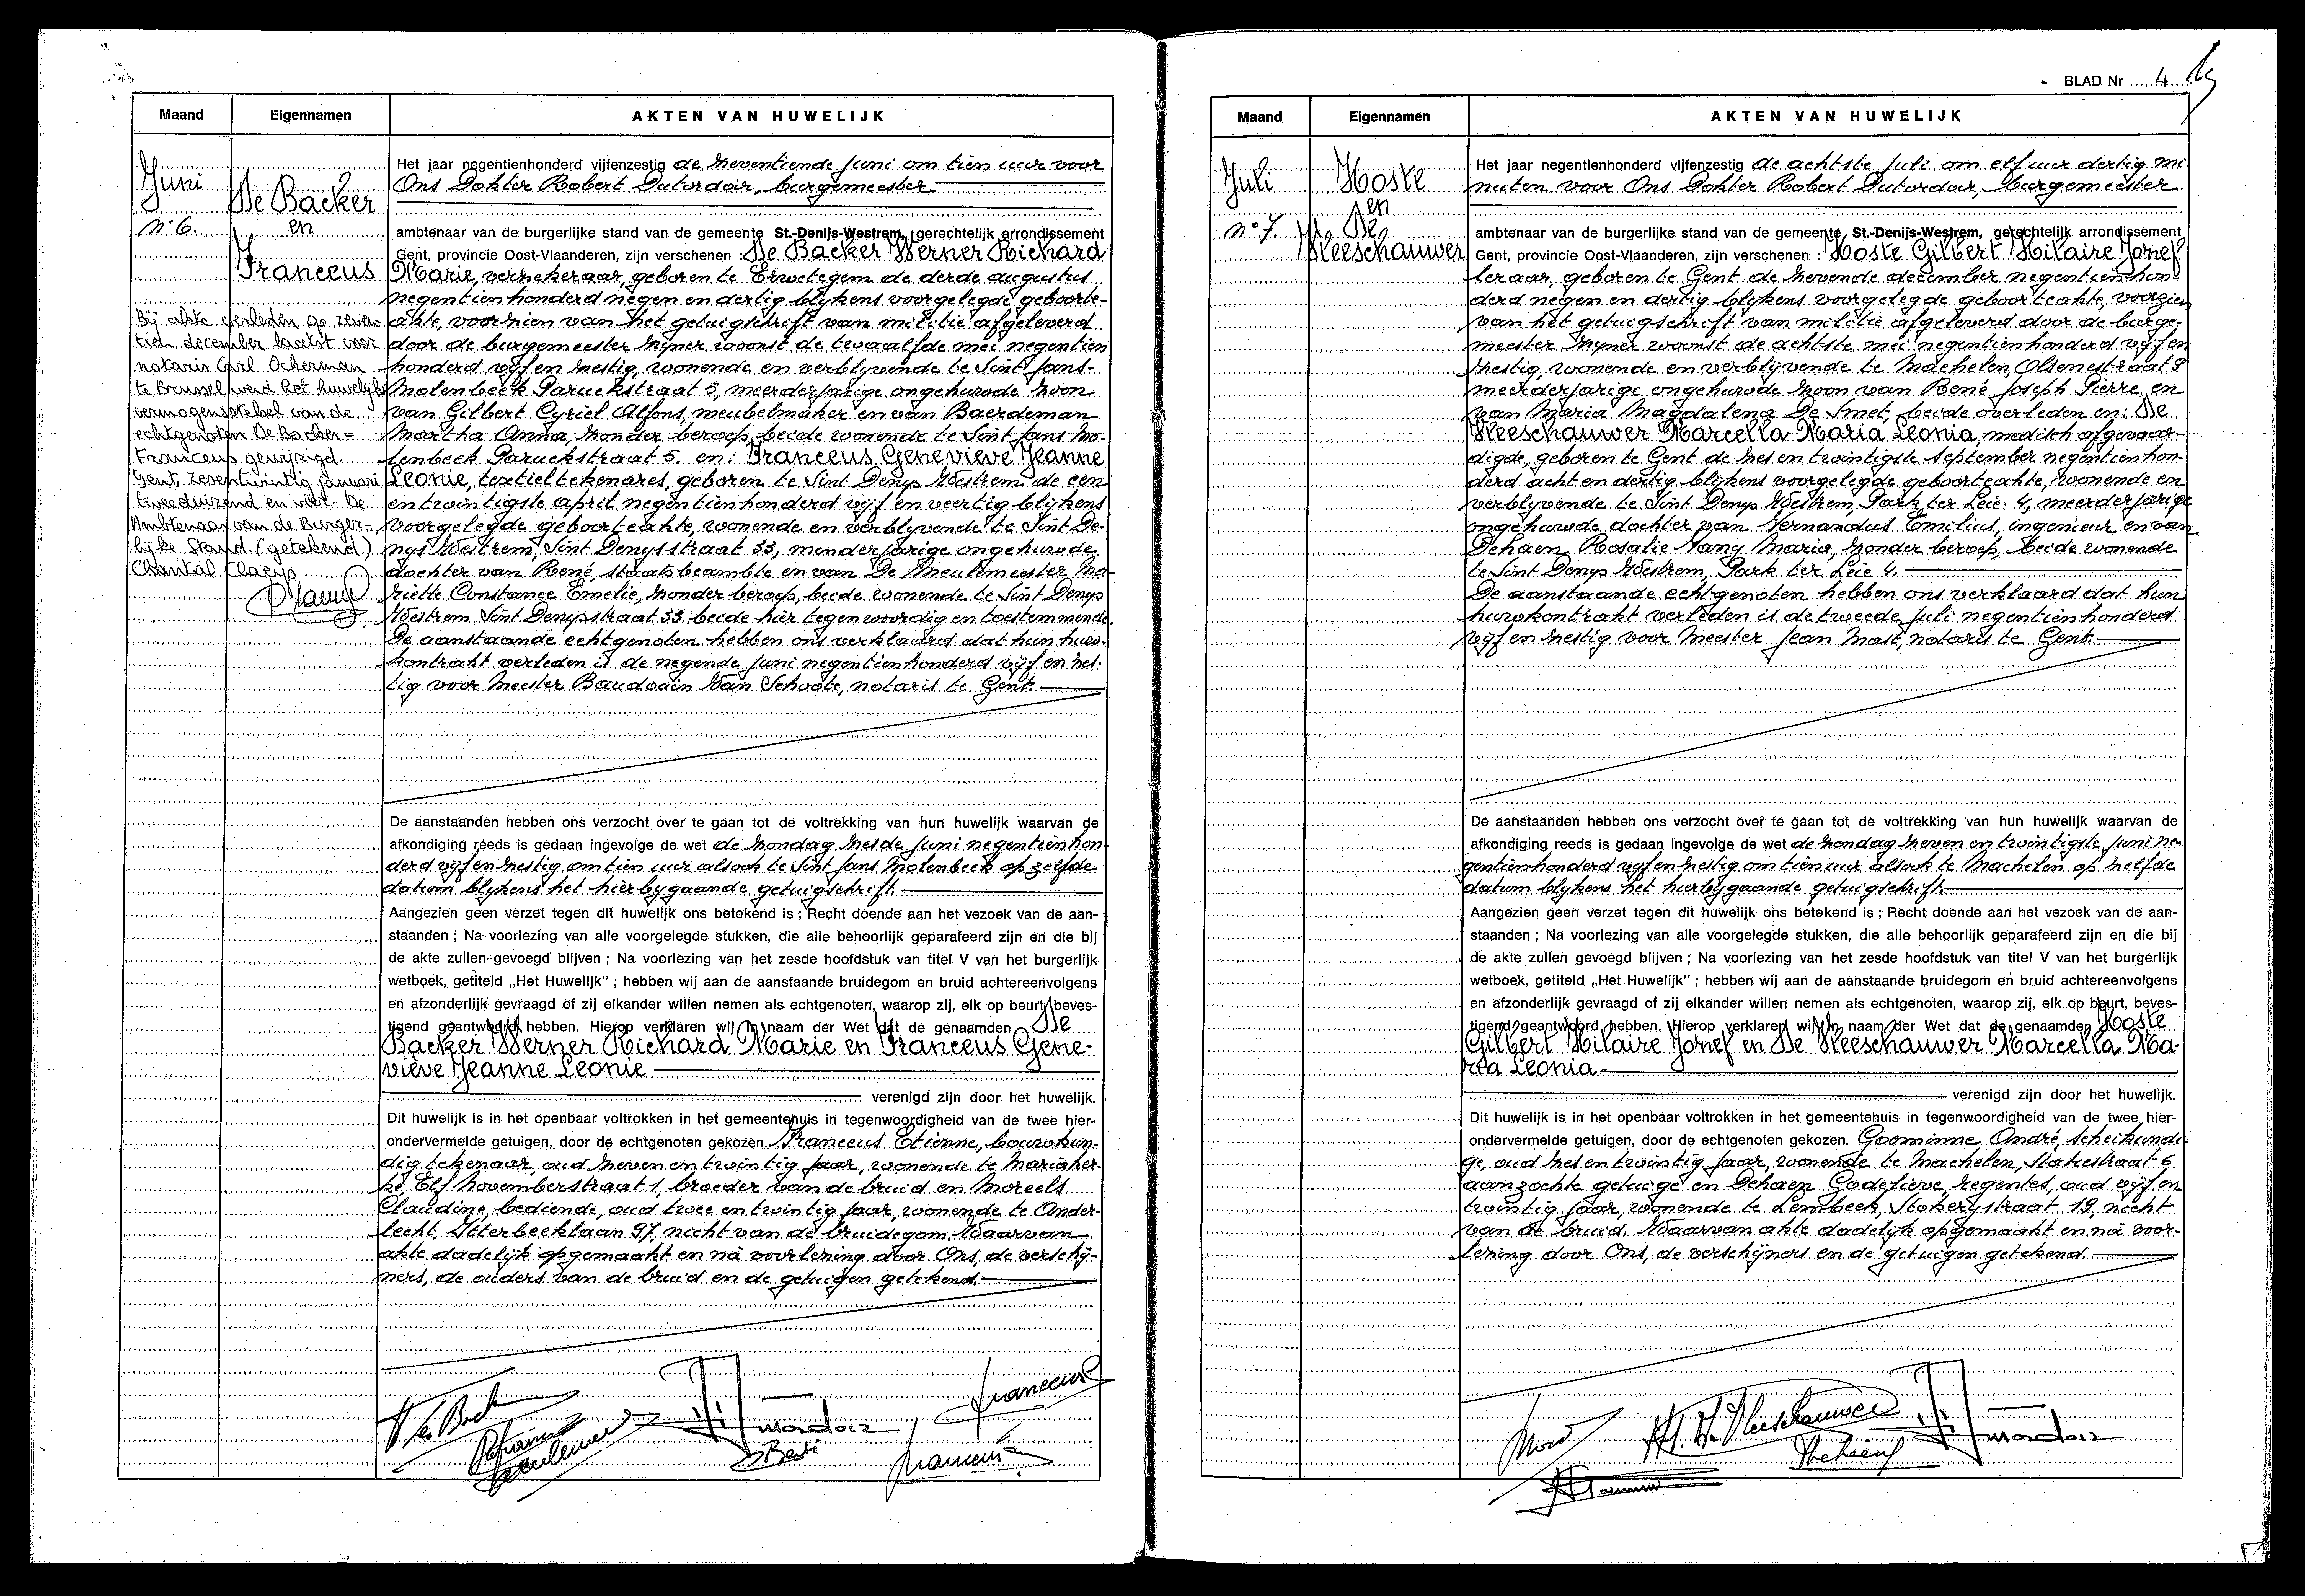 Maand Eigennamen AKTEN VAN HUWELIJK
Juni
De Backer
nº 6. en
Franceus
Bij akte verleden op zeven-
tien december laatst voor
notaris Carl Ockerman
te Brussel werd het huwelijks
vermogensstelsel van de
echtgenoten De Backer-
Franceus gewijzigd.
Gent, zesentwintig januari
tweeduizend en vier. De
Ambtenaar van de Burger-
lijke Stand. (getekend)
Chantal Claeys
Het jaar negentienhonderd vijfenzestig de zeventiende juni om tien uur voor
Ons Dokter Robert Dutordoir, burgemeester
ambtenaar van de burgerlijke stand van de gemeente St.-Denijs-Westrem, gerechtelijk arrondissement
Gent, provincie Oost-Vlaanderen, zijn verschenen : De Backer Werner Richard
Marie, verzekeraar, geboren te Erwetegem de derde augustus
negentienhonderd negen en dertig blijkens voorgelegde geboorte-
akte, voorzien van het getuigschrift van militie afgeleverd
door de burgemeester zijner woonst de twaalfde mei negentien
honderd vijf en zestig, wonende en verblijvende te Sint Jans-
Molenbeek Paruckstraat 5, meerderjarige ongehuwde zoon
van Gilbert Cyriel Alfons, meubelmaker en van Baerdeman
Martha Anna, zonder beroep, beide wonende te Sint Jans Mo-
lenbeek Paruckstraat 5. en: Franceus Geneviève Jeanne
Leonie, textieltekenares, geboren te Sint Denijs Westrem de een
en twintigste april negentienhonderd vijf en veertig blijkens
voorgelegde geboorteakte, wonende en verblijvende te Sint De-
nijs Westrem, Sint Denijsstraat 33, minderjarige ongehuwde
dochter van René, staatsbeambte en van De Meulemeester Ma-
riette Constance Emelie, zonder beroep, beide wonende te Sint Denijs
Westrem Sint Denijsstraat 33 beide hier tegenwoordig en toestemmende.
De aanstaande echtgenoten hebben ons verklaard dat hun huw-
kontrakt verleden is de negende juni negentienhonderd vijf en zes-
tig voor Meester Baudouin Van Schoote, notaris te Gent.
De aanstaanden hebben ons verzocht over te gaan tot de voltrekking van hun huwelijk waarvan de
afkondiging reeds is gedaan ingevolge de wet de zondag zesde juni negentienhon
derd vijf en zestig om tien uur alsook te Sint Jans Molenbeek op zelfde
datum blijkens het hierbijgaande getuigschrift.
Aangezien geen verzet tegen dit huwelijk ons betekend is ; Recht doende aan het vezoek van de aan-
staanden ; Na voorlezing van alle voorgelegde stukken, die alle behoorlijk geparafeerd zijn en die bij
de akte zullen gevoegd blijven ; Na voorlezing van het zesde hoofdstuk van titel V van het burgerlijk
wetboek, getiteld „Het Huwelijk" ; hebben wij aan de aanstaande bruidegom en bruid achtereenvolgens
en afzonderlijk gevraagd of zij elkander willen nemen als echtgenoten, waarop zij, elk op beurt, beves-
tigend geantwoord hebben. Hierop verklaren wij in naam der Wet dat de genaamden De
Backer Werner Richard Marie en Franceus Gene-
viève Jeanne Leonie
verenigd zijn door het huwelijk.
Dit huwelijk is in het openbaar voltrokken in het gemeentehuis in tegenwoordigheid van de twee hier-
ondervermelde getuigen, door de echtgenoten gekozen. Franceus Etienne, bouwkun-
dig tekenaar, oud zeven en twintig jaar, wonende te Mariaker-
ke, Elf Novemberstraat 1, broeder van de bruid en Moreels
Claudine, bediende, oud twee en twintig jaar, wonende te Ander-
lecht, Itterbeeklaan 97, nicht van de bruidegom. Waarvan
akte dadelijk opgemaakt en na voorlezing door Ons, de verschij-
ners, de ouders van de bruid en de getuigen getekend.
BLAD Nr 4
Maand Eigennamen AKTEN VAN HUWELIJK
Juli Hoste
en
nº 7. De
Vleeschauwer
Het jaar negentienhonderd vijfenzestig de achtste juli om elf uur dertig mi
nuten voor Ons Dokter Robert Dutordoir, burgemeester
ambtenaar van de burgerlijke stand van de gemeente St.-Denijs-Westrem, gerechtelijk arrondissement
Gent, provincie Oost-Vlaanderen, zijn verschenen : Hoste Gilbert Hilaire Jozef
leraar, geboren te Gent de zevende december negentienhon-
derd negen en dertig blijkens voorgelegde geboorteakte, voorzien
van het getuigschrift van militie afgeleverd door de burge-
meester zijner woonst de achtste mei negentienhonderd vijf en
zestig, wonende en verblijvende te Machelen, Olsenestraat 9
meerderjarige ongehuwde zoon van René Joseph Pierre en
van Maria Magdalena De Smet, beide overleden en: De
Vleeschauwer Marcella Maria Leonia, medisch afgevaar-
digde, geboren te Gent de zes en twintigste september negentienhon-
derd acht en dertig blijkens voorgelegde geboorteakte, wonende en
verblijvende te Sint Denijs Westrem, Park ter Leie 4, meerderjarige
ongehuwde dochter van Fernandus Emilius, ingenieur en van
Dehaen Rosalie Fany Maria, zonder beroep, beide wonende
te Sint Denijs Westrem, Park ter Leie 4.
De aanstaande echtgenoten hebben ons verklaard dat hun
huwkontrakt verleden is de tweede juli negentienhonderd
vijf en zestig voor Meester Jean Mast, notaris te Gent.
De aanstaanden hebben ons verzocht over te gaan tot de voltrekking van hun huwelijk waarvan de
afkondiging reeds is gedaan ingevolge de wet de zondag zeven en twintigste juni ne-
gentienhonderd vijf en zestig om tien uur alsook te Machelen op zelfde
datum blijkens het hierbijgaande getuigschrift.
Aangezien geen verzet tegen dit huwelijk ons betekend is ; Recht doende aan het vezoek van de aan-
staanden ; Na voorlezing van alle voorgelegde stukken, die alle behoorlijk geparafeerd zijn en die bij
de akte zullen gevoegd blijven ; Na voorlezing van het zesde hoofdstuk van titel V van het burgerlijk
wetboek, getiteld „Het Huwelijk" ; hebben wij aan de aanstaande bruidegom en bruid achtereenvolgens
en afzonderlijk gevraagd of zij elkander willen nemen als echtgenoten, waarop zij, elk op beurt, beves-
tigend geantwoord hebben. Hierop verklaren wij in naam der Wet dat de genaamden Hoste
Gilbert Hilaire Jozef en De Vleeschauwer Marcella Ma-
ria Leonia
verenigd zijn door het huwelijk.
Dit huwelijk is in het openbaar voltrokken in het gemeentehuis in tegenwoordigheid van de twee hier-
ondervermelde getuigen, door de echtgenoten gekozen. Goeminne André, scheikundi-
ge, oud zes en twintig jaar, wonende te Machelen, Statiestraat 6
aanzochte getuige en Dehaen Godelieve, regentes, oud vijf en
twintig jaar, wonende te Lembeek, Stokerijstraat 19, nicht
van de bruid. Waarvan akte dadelijk opgemaakt en na voor-
lezing door Ons, de verschijners en de getuigen getekend.